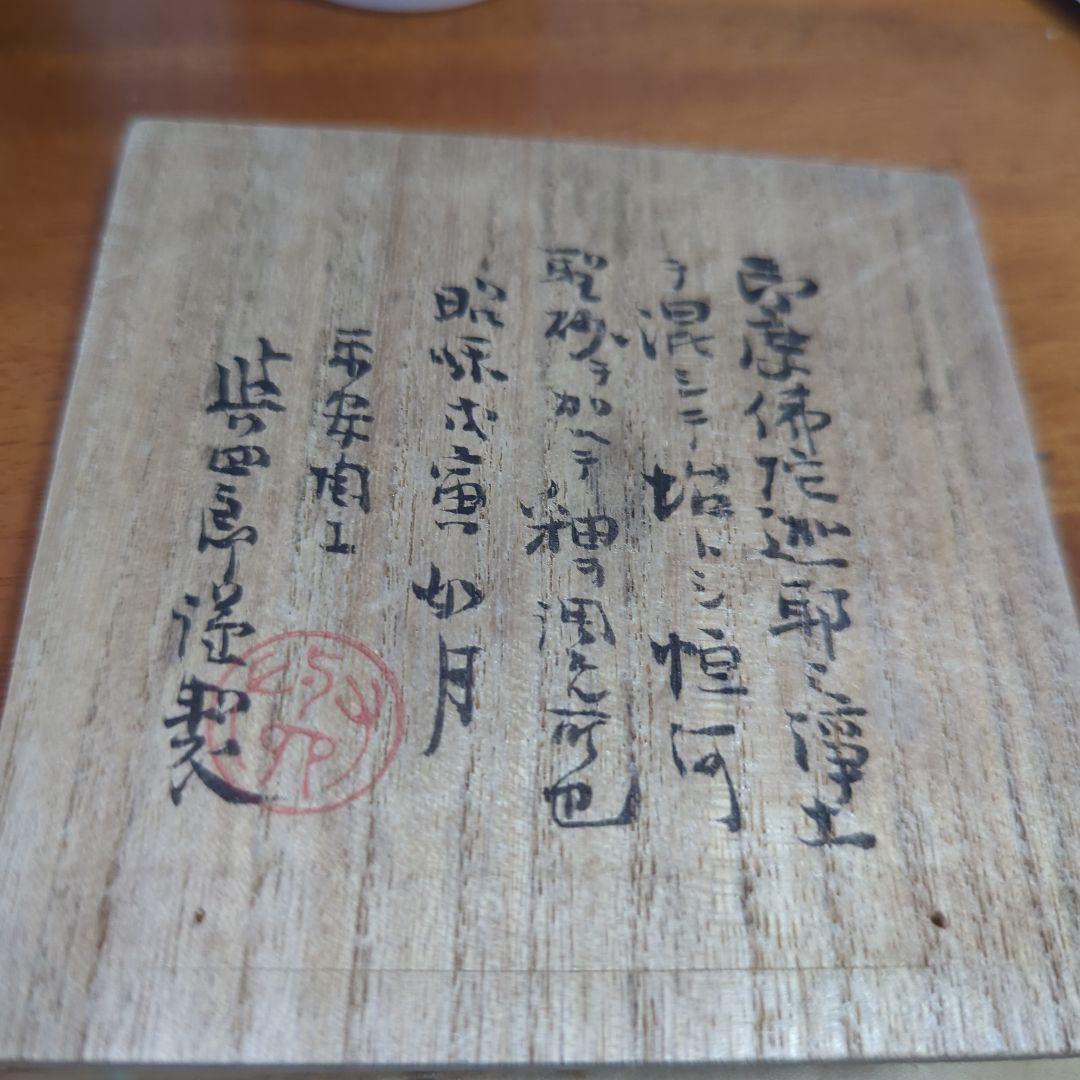 印度佛陀迦耶之淨土
ヲ混シテ トシ恒河
聖砂ヲ加ヘテ釉ヲ調 所也
昭和戊寅如月
平安陶工
四郎謹製